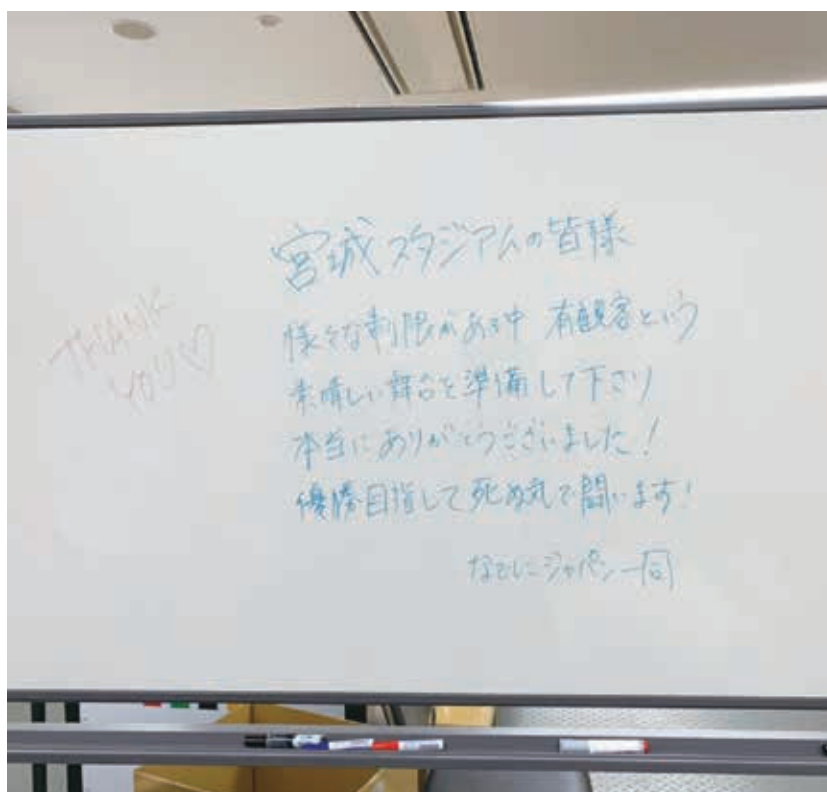 宮城スタジアムの皆様
様々な制限がある中 有観客という
素晴しい舞台を準備して下さり
本当にありがとうございました!
優勝目指して死ぬ気で闘います!
なでしこジャパン一同
THANK
YOU♡